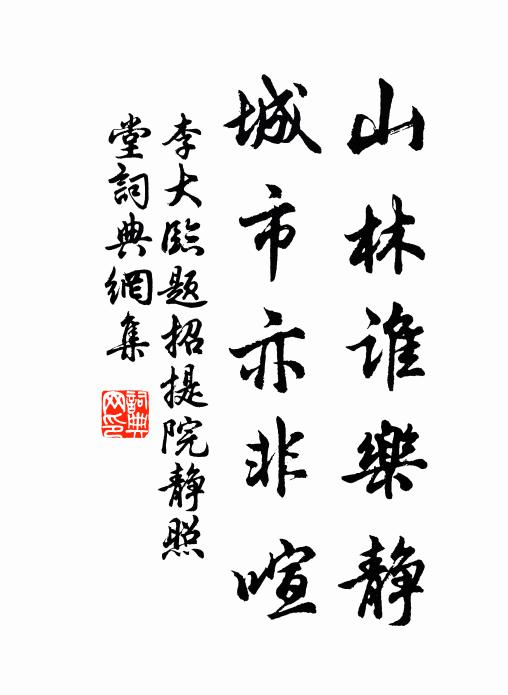 山林谁樂静
城市亦非喧
李大臨题招提院静照
堂詞典網集
詞典
网印